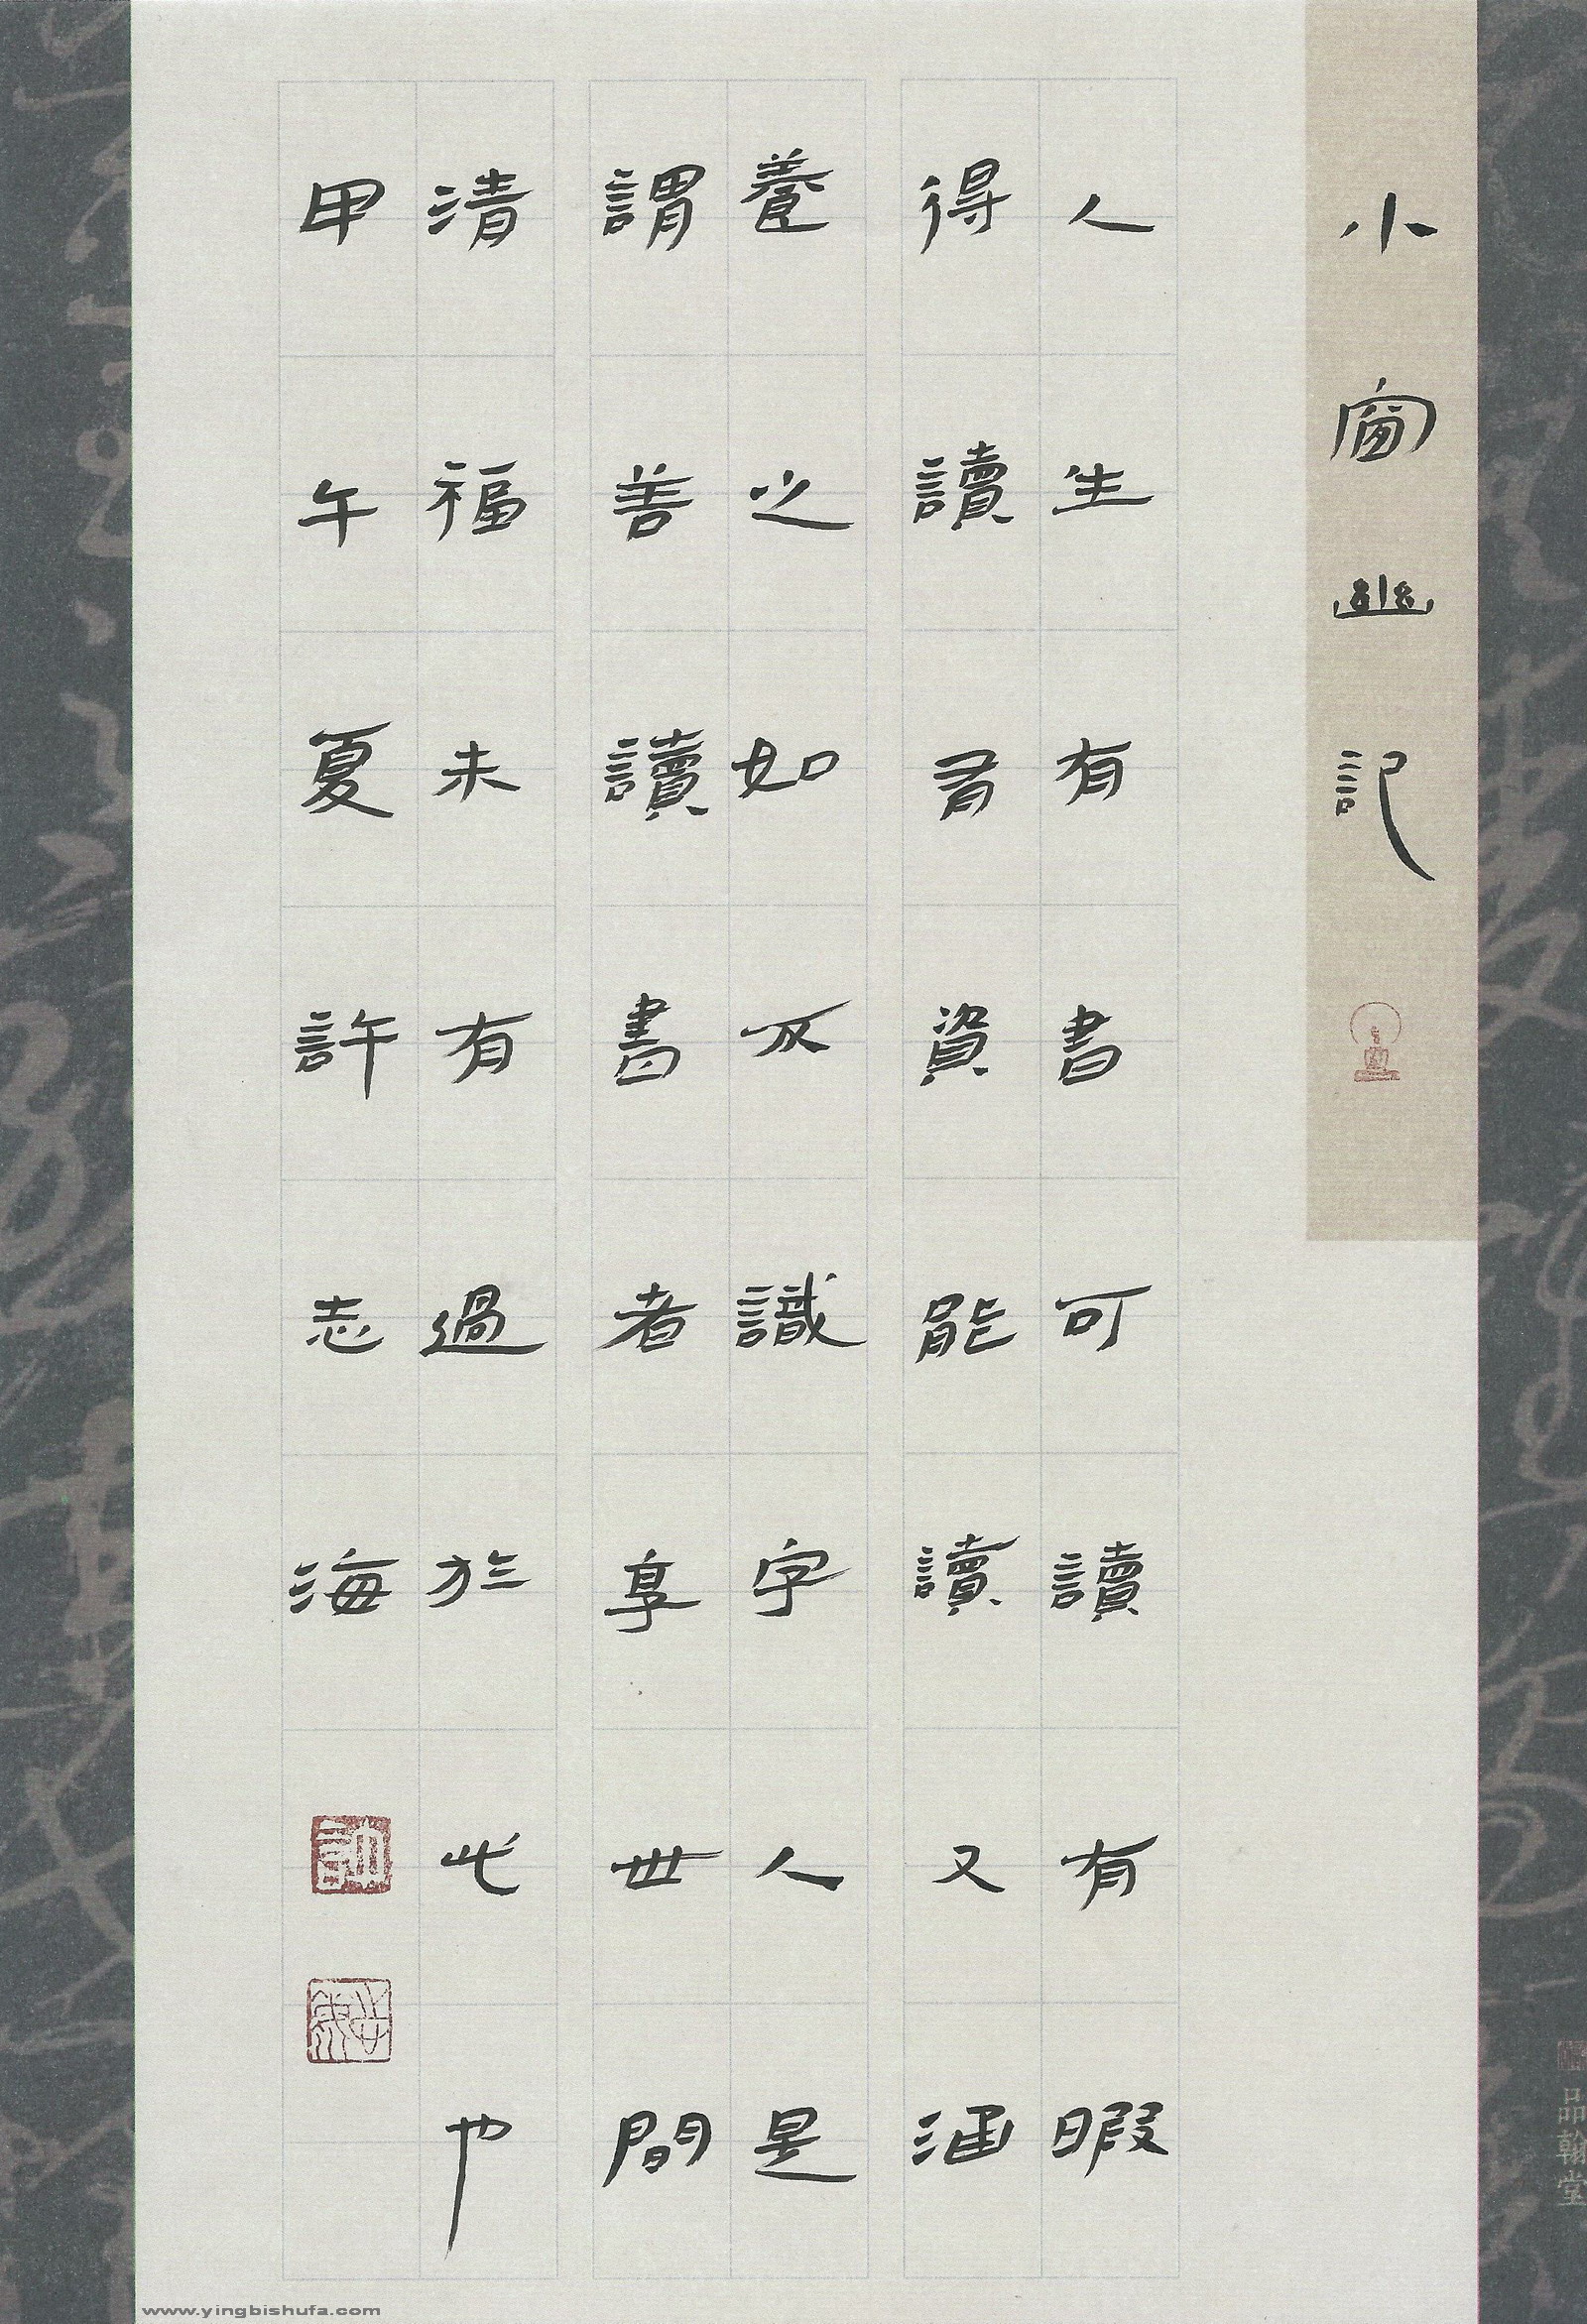 小窗幽記
人生有書可讀有暇
得讀有資能讀又涵
養之如不識字人是
謂善讀書者享世間
清福未有過於此也
甲午夏許志海
品翰堂
www.yingbishufa.com